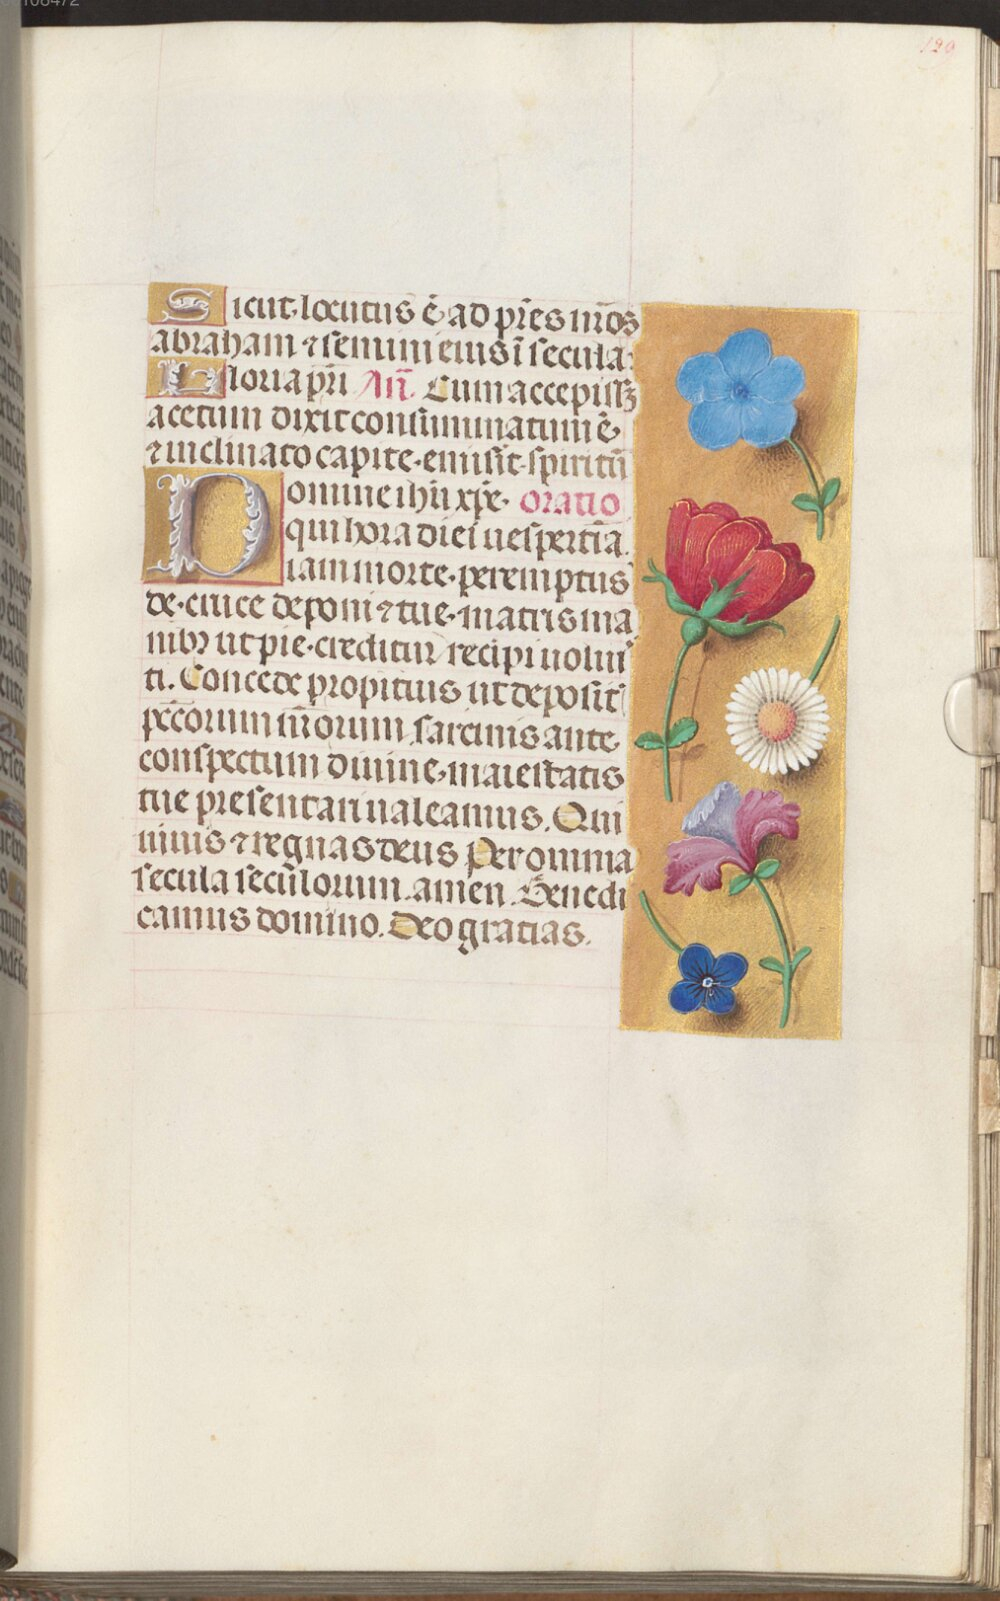 129
Sicut locutus ē ad pr̄es nr̄os
abraham ⁊ semini eius ī secula:
Gloria pr̄i Añ. Cum accepiss;
acetum dixit consummatum ē
⁊ inclinato capite emisit spiritū
Domine ihū xp̄e. oratio
qui hora diei uespertīa
iam morte peremptus
de cruce deponi ⁊ tue matris ma
nibꝫ ut pie creditur recipi uolui
ti. Concede propitius ut deposit
pc̄corum nr̄orum sarcinis ante
conspectum diuine maiestatis
tue presentari ualeamus. Qui
uiuis ⁊ regnas deus Per omnia
secula seculorum amen. Benedi
camus domino. Deo gratias.